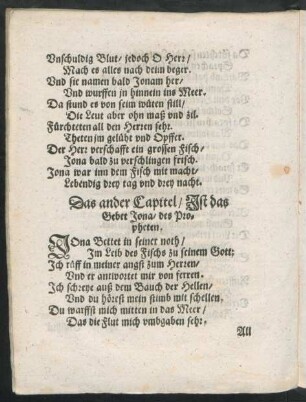 Vnschuldig Blut/ jedoch O Herr/
Mach es alles nach deim beger.
Vnd sie namen bald Jonam her/
Vnd wurffen jn hinnein ins Meer.
Da stund es von seim wüten still/
Die Leut aber ohn maß vnd zil.
Fürchteten all den Herren sehr.
Theten jm gelübt vnd Opffer.
Der Herr verschafft ein grossen Fisch/
Jona bald zu verschlingen frisch.
Jona war inn dem Fisch mit macht/
Lebendig drey tag vnd drey nacht.
Das ander Capitel/ Ist das
Gebet Jona/ des Pro-
pheten.
JOna Bettet in seiner noth/
Im Leib des Fischs zu seinem Gott:
Ich rüff in meiner angst zum Herren/
Vnd er antwortet mir von ferren.
Ich schreye auß dem Bauch der Hellen/
Vnd du hörest mein stimb mit schellen.
Du warffst mich mitten in das Meer/
Das die Flut mich vmbgaben sehr.
All